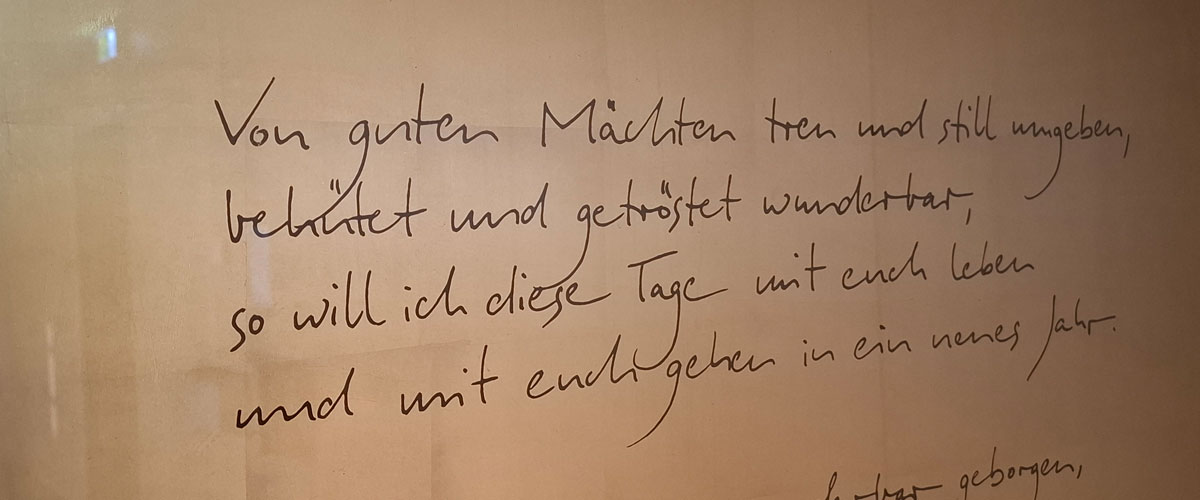 Von guten Mächten treu und still umgeben,
behütet und getröstet wunderbar,
so will ich diese Tage mit euch leben
und mit euch gehen in ein neues Jahr.
geborgen,